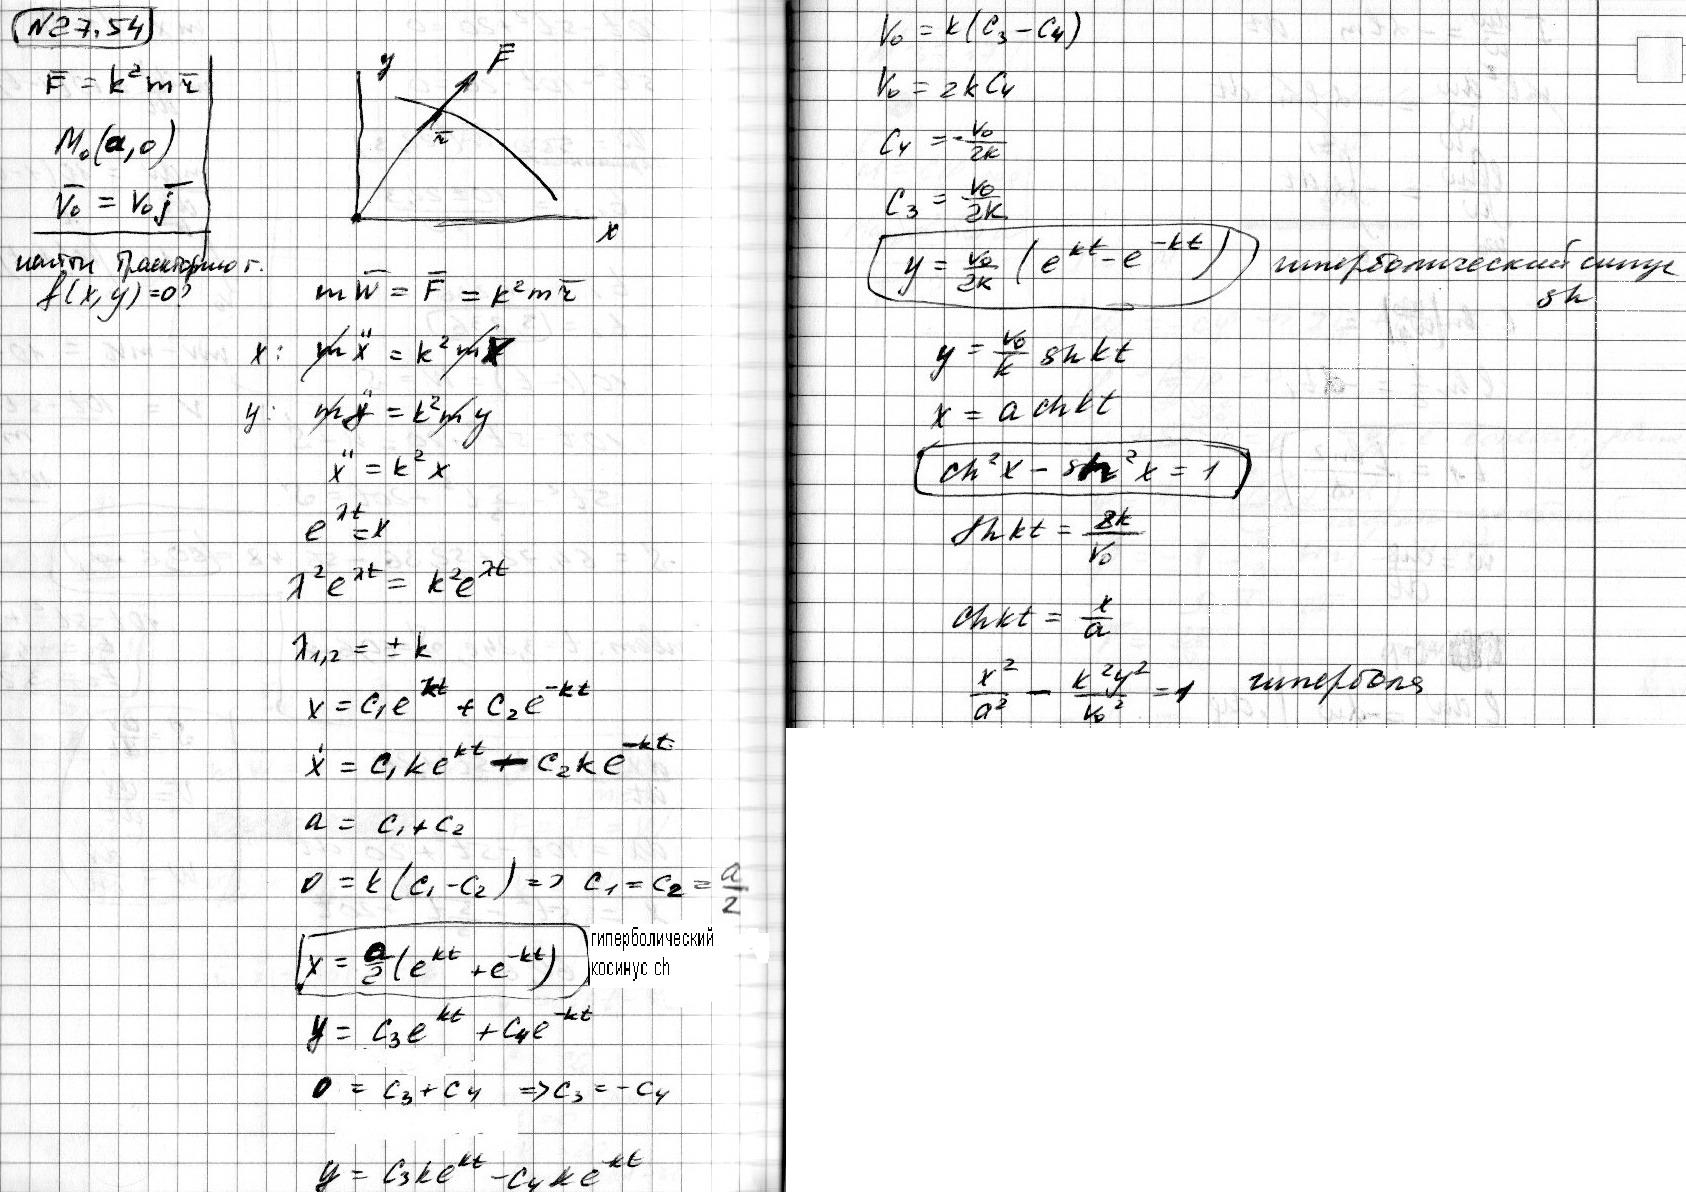 N27.54
F̄ = k²mr̄
M₀(a,0)
V̄₀ = V₀j̄
найти траекторию т.
f(x,y)=0?
y
F
r̄
x
mW̄ = F̄ = k²mr̄
x: mẍ = k²mx
y: mÿ = k²my
ẍ = k²x
e^λt = x
λ²e^λt = k²e^λt
λ₁,₂ = ± k
x = C₁e^kt + C₂e^-kt
ẋ = C₁ke^kt - C₂ke^-kt
a = C₁+C₂
0 = k(C₁-C₂) => C₁=C₂= a/2
x = a/2 (e^kt + e^-kt) гиперболический
косинус ch
y = C₃e^kt + C₄e^-kt
0 = C₃+C₄ => C₃ = -C₄
y = C₃ke^kt - C₄ke^-kt
V₀ = k(C₃-C₄)
V₀ = 2kC₄
C₄ = -V₀/2k
C₃ = V₀/2k
y = V₀/2k (e^kt - e^-kt) гиперболический синус
sh
y = V₀/k sh kt
x = a ch kt
ch²x - sh²x = 1
sh kt = yk/V₀
ch kt = x/a
x²/a² - k²y²/V₀² = 1 гипербола